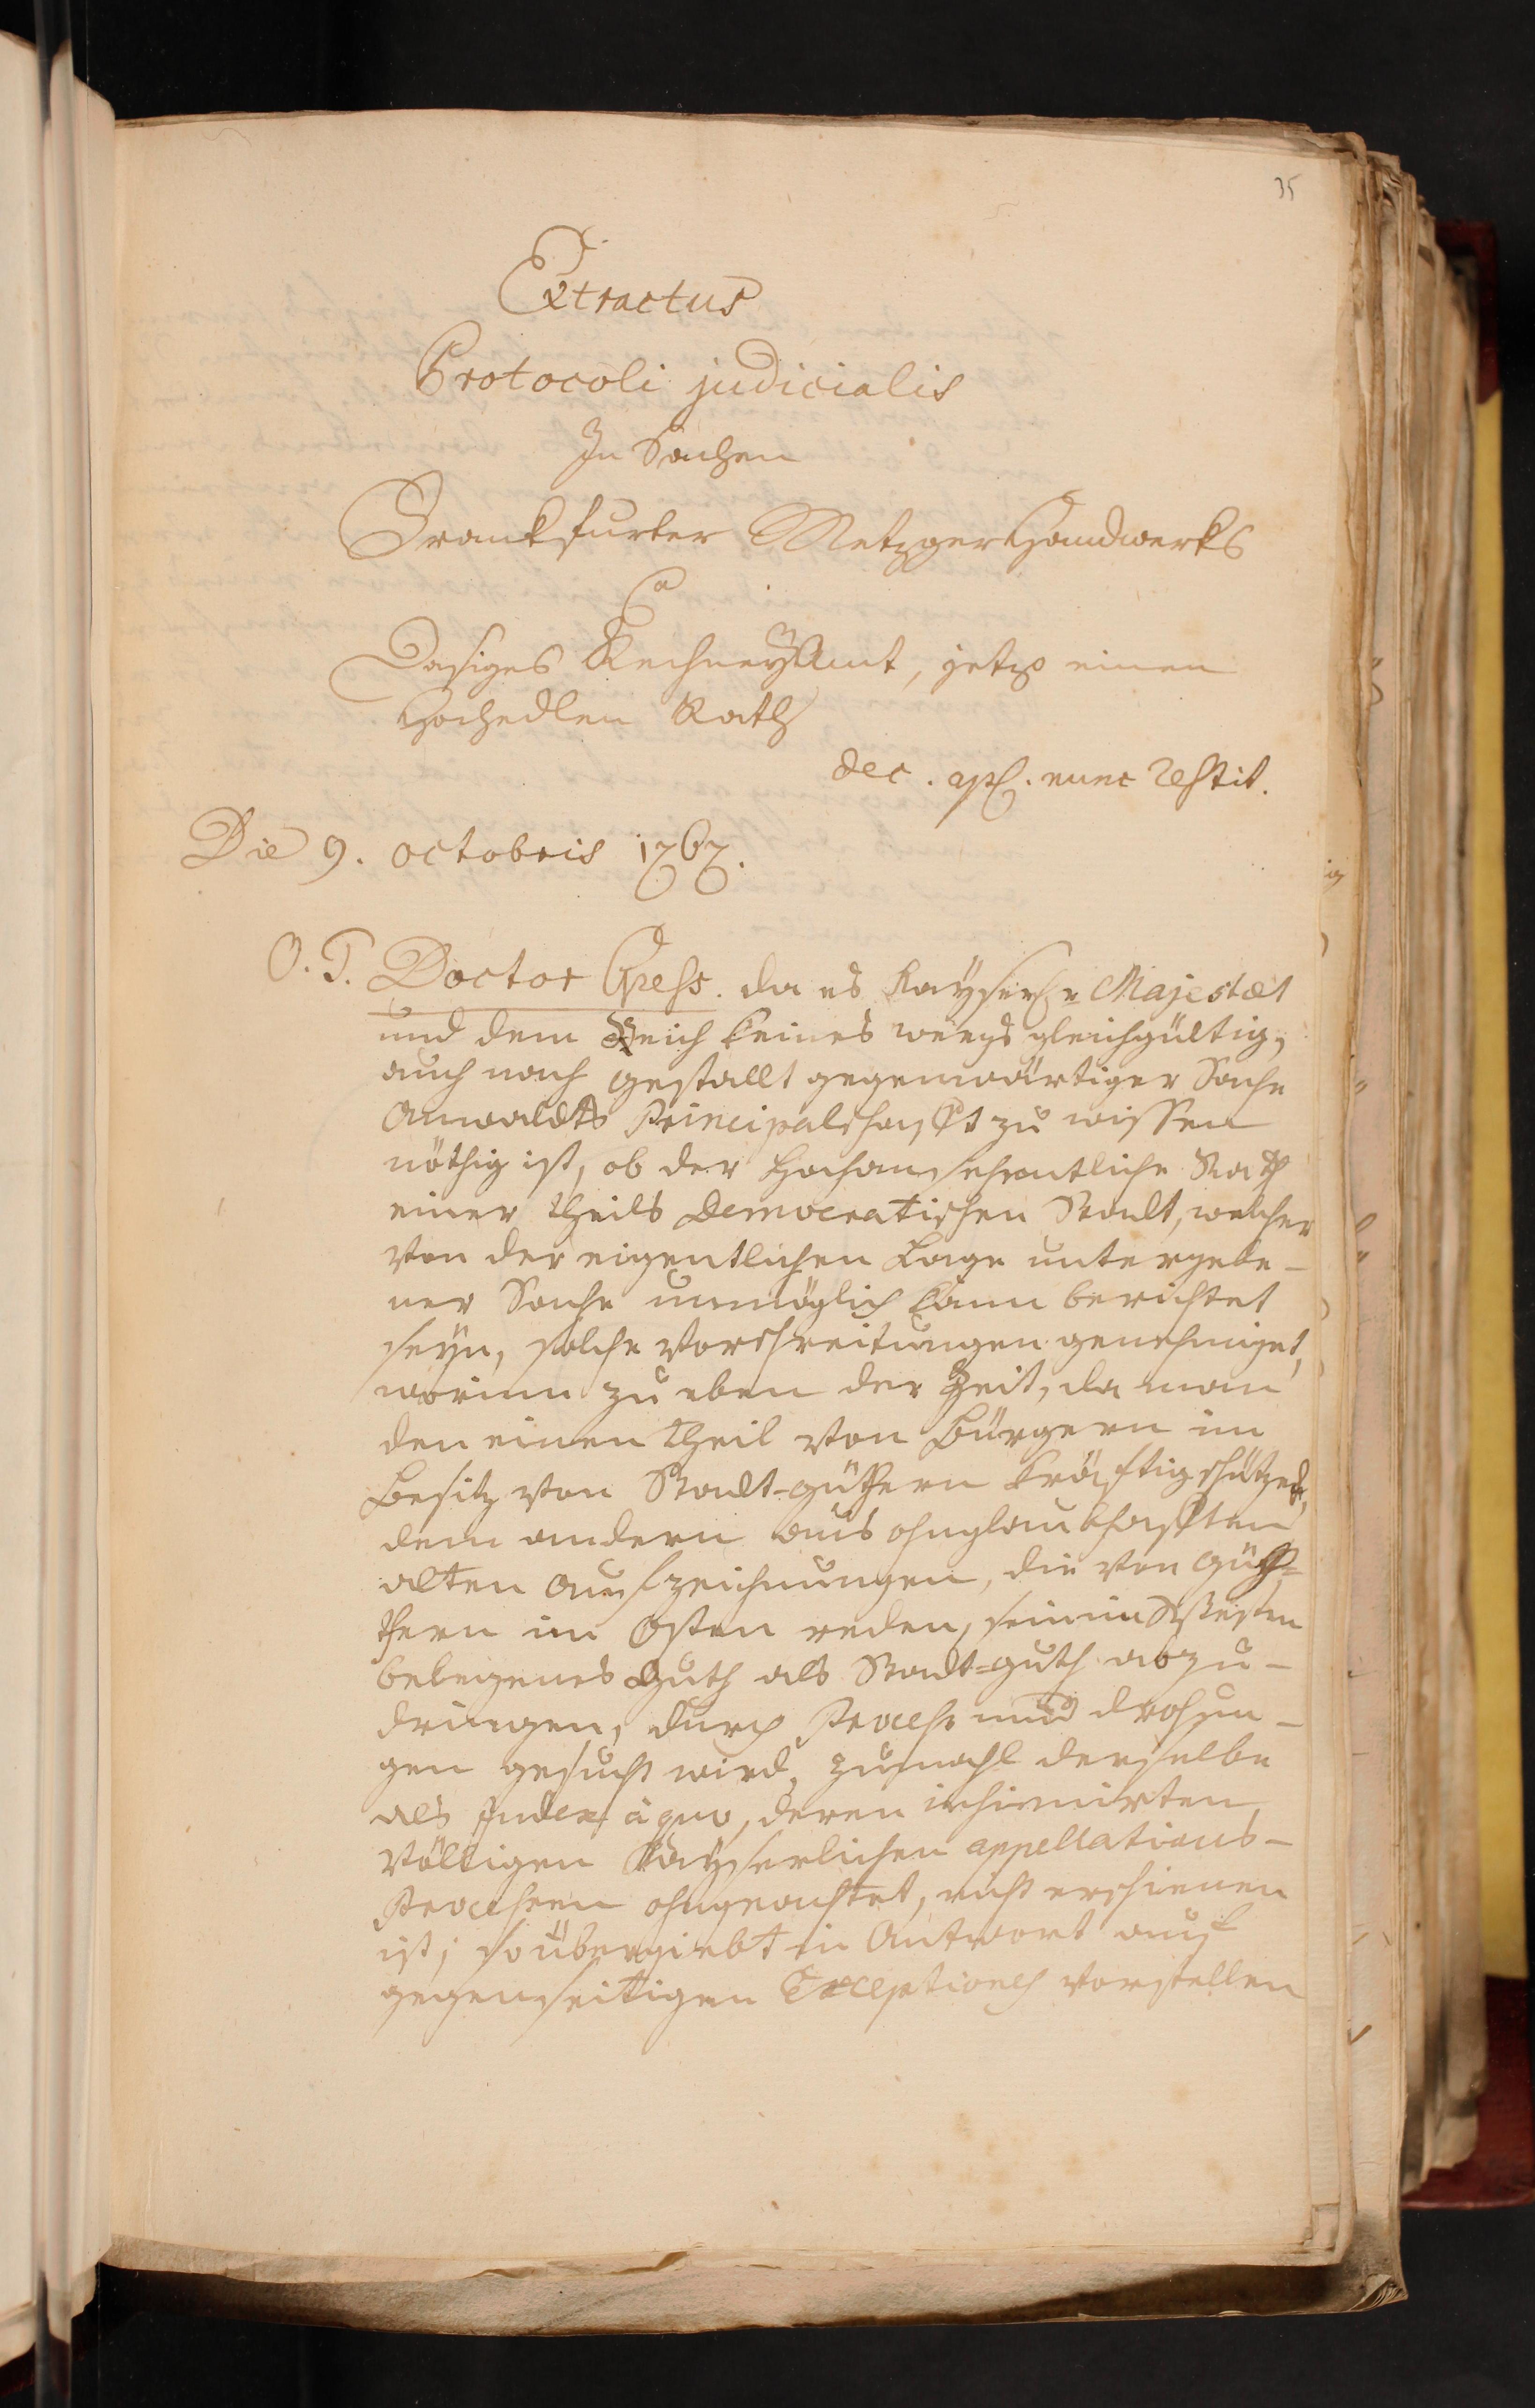 35
Extractus
Protocoli judicialis
In Sachen
Franckfurter Metzger Handwerks
Ca
Dasiges RechneyAmt, jetzo einen
Hochedlen Rath
dec. apl. nunc restit.
Die 9. octobris 1767.
O. T. Doctor Gress. da es Kayserl.r Majestæt
und dem Reich keines weegs gleichgültig,
auch nach gestallt gegenwärtiger Sache
Anwaldts Principalschafft zu wissen
nöthig ist, ob der Hochansehentliche Rath
einer theils Democratischen Stadt, welcher
von der eigentlichen Lage untergebe-
ner Sache unmöglich kann berichtet
seyn, solche Vorschreitungen genehmiget,
worinn zu eben der Zeit, da man
den einen theil von Bürgern im
Besitz von Stadt-güthern kräftig schützet,
dem andern aus ohnglaubhafften
alten Aufzeichnungen, die von Güth=
thern im Osten reden, sein im Westen
belegenes Guth als Stadt=guth abzu-
dringen, durch Process und drohun-
gen gesucht wird, zumahl derselbe
als Judex à quo, deren insinuirten,
völligen Kayserlichen appellations-
Processen ohngeachtet, nicht erschienen
ist; so übergiebt in Antwort auf
gegenseitigen Exceptiones vorstellen